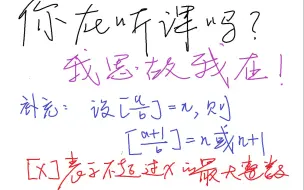 你在听课吗?
我思故我在!
补充: 设[a/b]=n, 则
[a+1/b]=n或n+1
[X]表示不超过X的最大整数